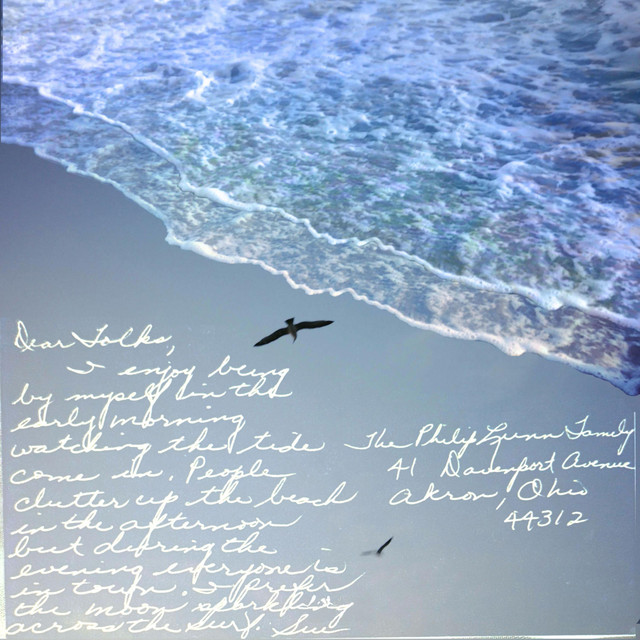 Dear Folks,
I enjoy being
by myself in the
early morning
watching the tide
come in. People
clutter up the beach
in the afternoon
but during the
evening everyone is
in town. I prefer
the moon sparkling
across the surf. Sue
The Philip Lynn Family
41 Davenport Avenue
Akron, Ohio
44312